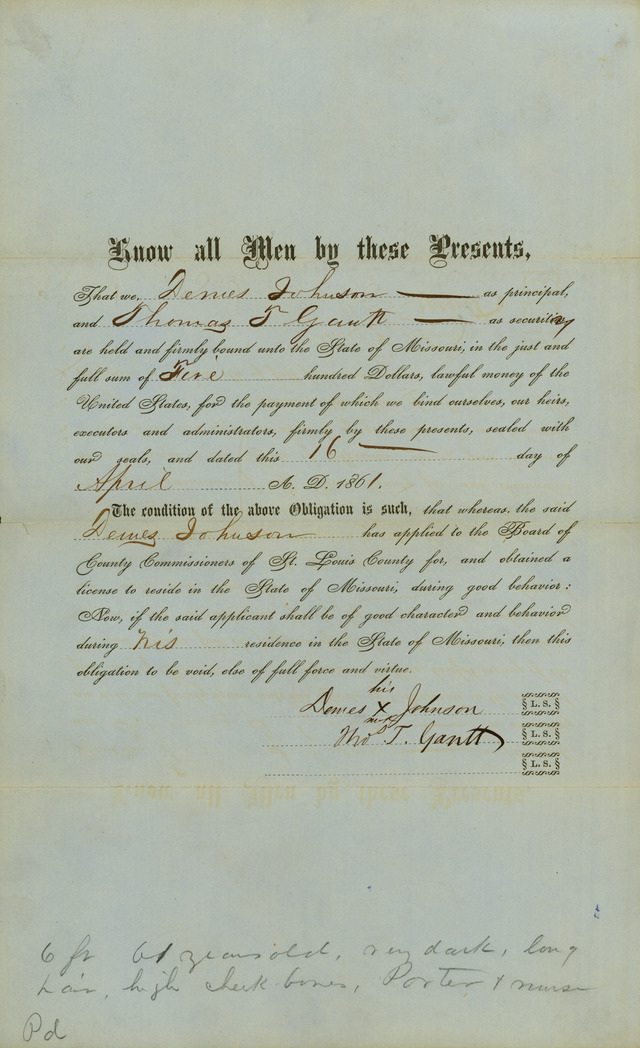 Know all Men by these Presents,
That we, Demes Johnson as principal,
and Thomas T Gantt as security
are held and firmly bound unto the State of Missouri, in the just and
full sum of Five hundred Dollars, lawful money of the
United States, for the payment of which we bind ourselves, our heirs,
executors and administrators, firmly by these presents, sealed with
our seals, and dated this 16 day of
April A. D. 1861.
The condition of the above Obligation is such, that whereas, the said
Demes Johnson has applied to the Board of
County Commissioners of St. Louis County for, and obtained a
license to reside in the State of Missouri, during good behavior:
Now, if the said applicant shall be of good character and behavior
during his residence in the State of Missouri, then this
obligation to be void, else of full force and virtue.
his
Demes X Johnson § L. S. §
mark
Tho T. Gantt § L. S. §
§ L. S. §
6 ft 61 years old, very dark, long
hair, high cheek bones, Porter & nurse
Pd